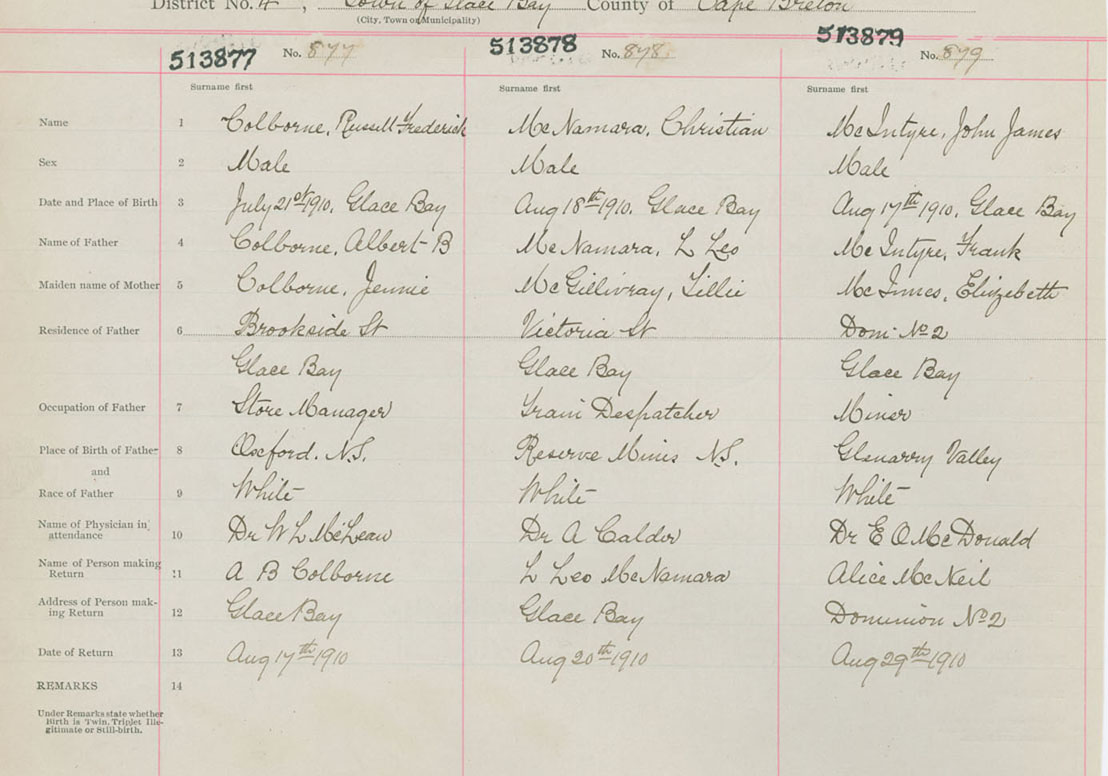 District No. 4, Town of Glace Bay County of Cape Breton
(City, Town or Municipality)
513877 No. 877 513878 No. 878 513879 No. 879
Surname first Surname first Surname first
Name 1 Colborne, Russell Frederick McNamara, Christian McIntyre, John James
Sex 2 Male Male Male
Date and Place of Birth 3 July 21st 1910, Glace Bay Aug 18th 1910, Glace Bay Aug 17th 1910, Glace Bay
Name of Father 4 Colborne, Albert B McNamara, L Leo McIntyre, Frank
Maiden name of Mother 5 Colborne, Jennie McGillivray, Lillie McInnes, Elizebeth
Residence of Father 6 Brookside St Victoria St Dom. No 2
Glace Bay Glace Bay Glace Bay
Occupation of Father 7 Store Manager Train Despatcher Miner
Place of Birth of Father 8 Oxford. N.S. Reserve Mines N.S. Glenarry Valley
and
Race of Father 9 White White White
Name of Physician in attendance 10 Dr W L McLean Dr A Calder Dr E O McDonald
Name of Person making Return 11 A B Colborne L Leo McNamara Alice McNeil
Address of Person mak-ing Return 12 Glace Bay Glace Bay Dominion No 2
Date of Return 13 Aug 17th 1910 Aug 20th 1910 Aug 29th 1910
REMARKS 14
Under Remarks state whether
Birth is Twin, Triplet Ille-
gitimate or Still-birth.